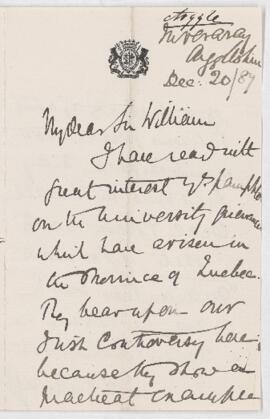 Argyll
Inveraray
Argyllshire
Dec: 20/89
My dear Sir William
I have read with
great interest yr pamphlet
on the University grievances
which have arisen in
the Province of Quebec.
They bear upon our
Irish Controversy here,
because they show on
practical example